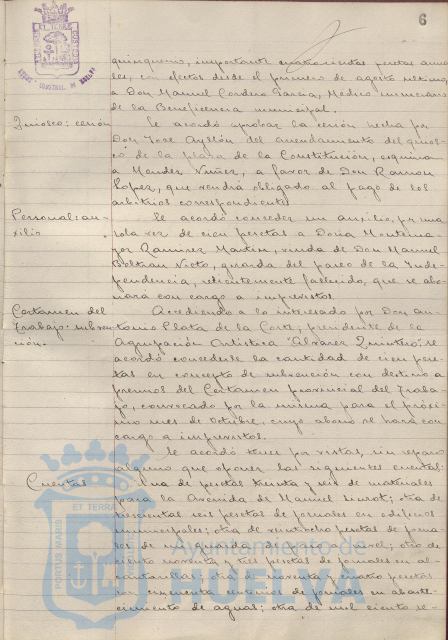 6
quinquenio, importante cuatrocientas pesetas anua-
les, con efectos desde el primero de agosto último,
a Don Manuel Cordero García, Médico numerario
de la Beneficencia municipal.
Quiosco: cesión
Se acordó aprobar la cesión hecha por
Don José Ayllón del arrendamiento del quios-
co de la plaza de la Constitución, esquina
a Mendez Nuñez, a favor de Don Ramon
Lopez, que vendrá obligado al pago de los
arbitrios correspondientes.
Personal: au-
xilio
Se acordó conceder un auxilio, por una
sola vez de cien pesetas a Doña Montema-
yor Ramirez Martin, viuda de Don Manuel
Beltran Nieto, guarda del paseo de la Inde-
pendencia, recientemente fallecido, que se abo-
nará con cargo a imprevistos.
Certamen del
Trabajo: subven-
ción.
Accediendo a lo interesado por Don An-
tonio Plata de la Corte, presidente de la
Agrupación Artistica "Alvarez Quintero" se
acordó concederle la cantidad de cien pese-
tas en concepto de subvención con destino a
premios del Certamen provincial del Traba-
jo, convocado por la misma para el próxi-
mo mes de Octubre, cuyo abono se hará con
cargo a imprevistos.
Cuentas
Se acordó tener por vistas, sin reparo
alguno que oponer las siguientes cuentas:
Una de pesetas treinta y seis de materiales
para la Avenida de Manuel Siurot; otra de
trescientas seis pesetas de jornales en edificios
municipales; otra de veintiocho pesetas de jorna-
les de un guarda de; otra de
ciento noventa y tres pesetas de jornales en al-
cantarillas; otra de noventa y cuatro pesetas
con cincuenta centimos de jornales en abaste-
cimiento de aguas; otra de mil ciento se-
Ayuntamiento de
HUELVA
PORTUS MARIS
ET TERRAE